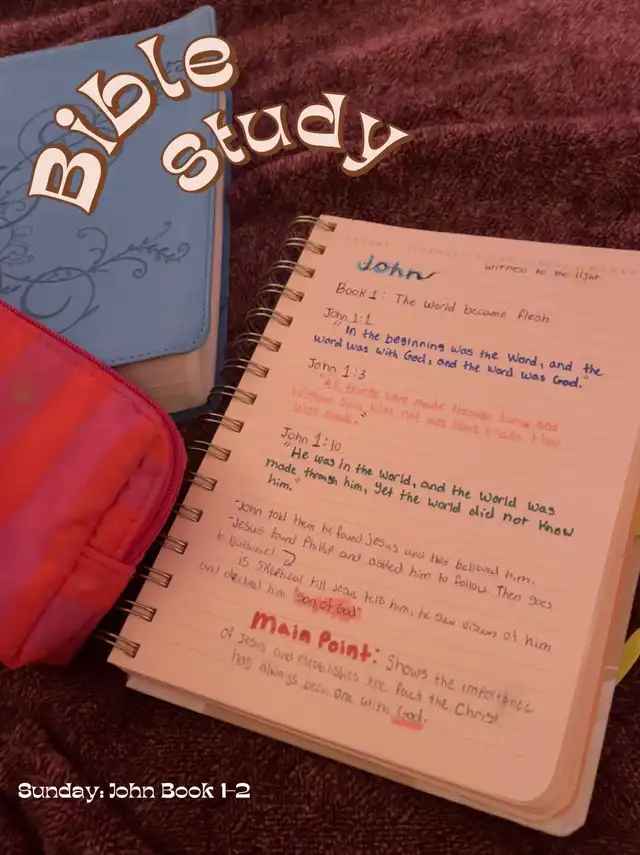 Bible
Study
John
witness to the light
Book 1: The World became flesh
John 1:1
"In the beginning was the Word, and the
word was with God, and the word was God."
John 1:3
"All things were made through him, and
without him was not any thing made that
was made."
John 1:10
"He was in the world, and the world was
made through him, yet the world did not know
him."
-John told them he found Jesus and they believed him.
-Jesus found Philip and asked him to follow. Then goes
to Nathaniel
is skeptical till Jesus tells him, he saw vision of him
and declared him "Son of God"
Main Point: Shows the importance
of Jesus and establishes the fact the Christ
has always been one with God.
Sunday: John Book 1-2